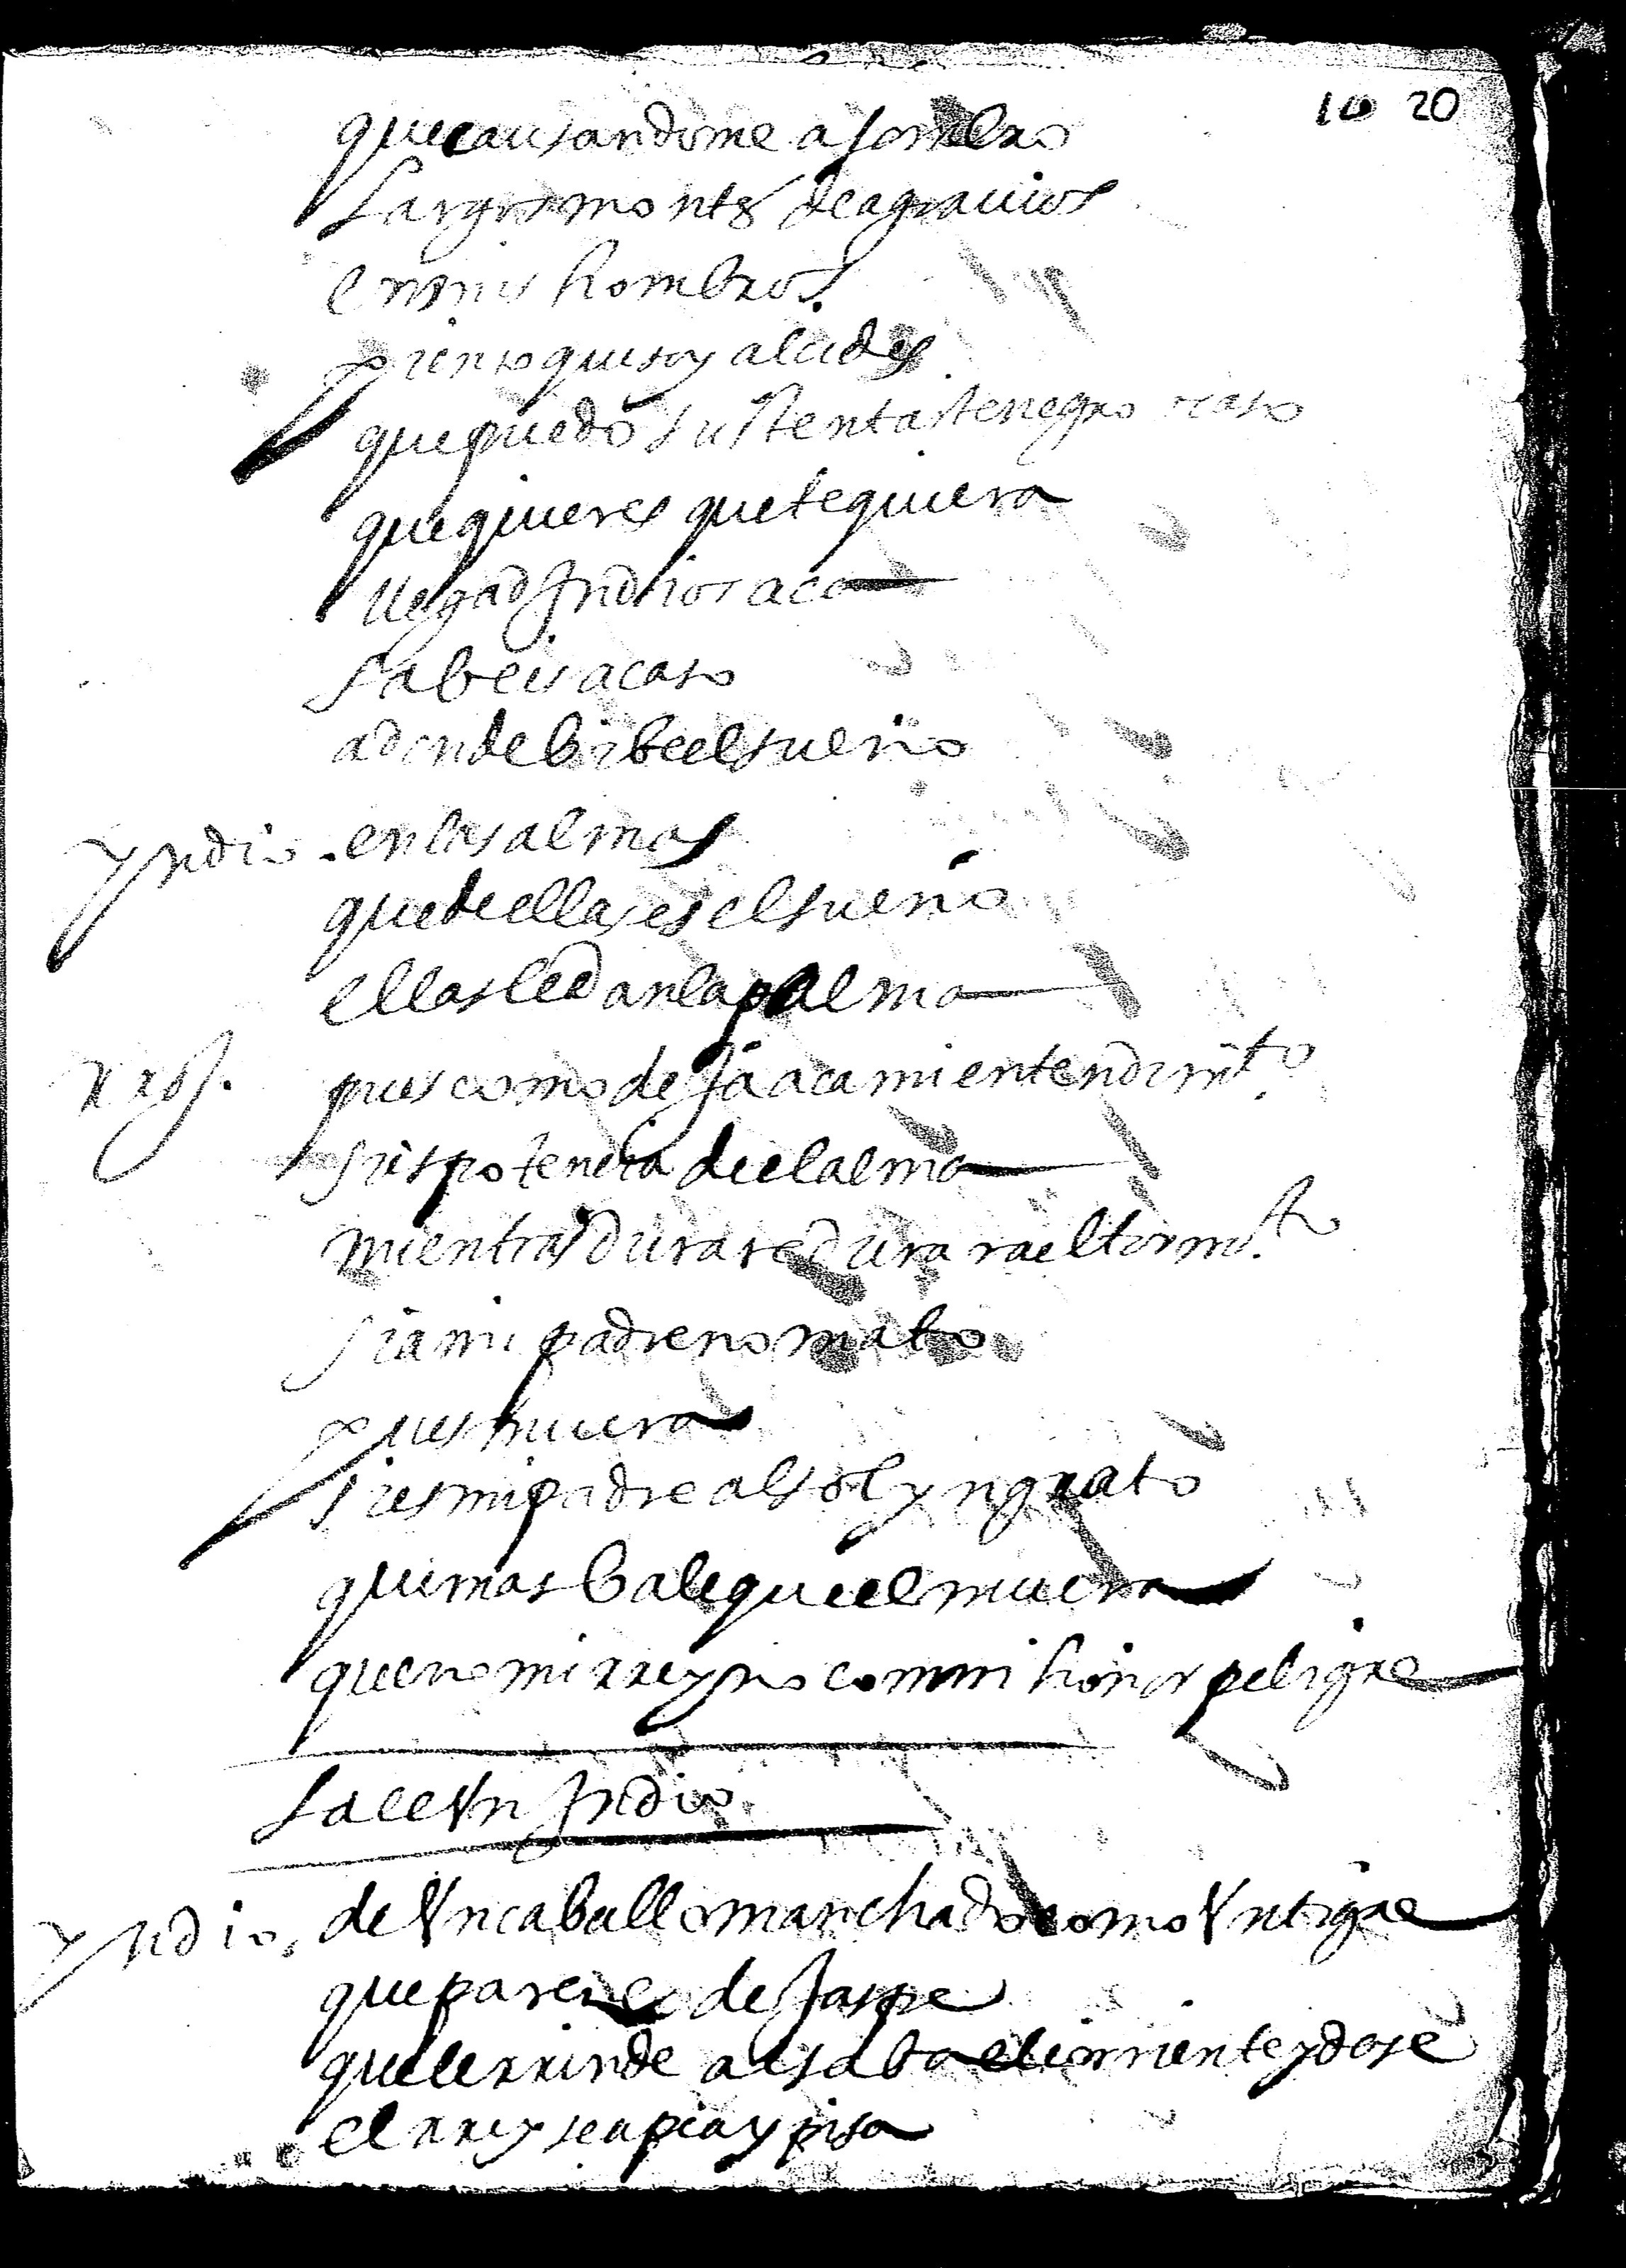 10 20
que causandome asombro
cargas montes de agrauios
en mis hombros
pienso que soy alcides
que puedo sustentar tenegro ocaso
que quieres que te quiera
llegad Indios aca
sabeis acaso
adonde bibe el sueño
yndio. en las almas
que de ellas es el sueño
ellas le dan la palma
pues como deja aca mi entendimto.
si es potencia de el alma
mientras durare durara el tormto.
si a mi padre no mato
pues muera
si es mi padre al sol yngrato
que mas bale que el muera
que no mi rreyno con mi honor peligre
sale Vn Indio
yndio. de Vn caballo manchado como Vn tigre
que parece de Jaspe
que le rrinde
el rrey se apea y pisa